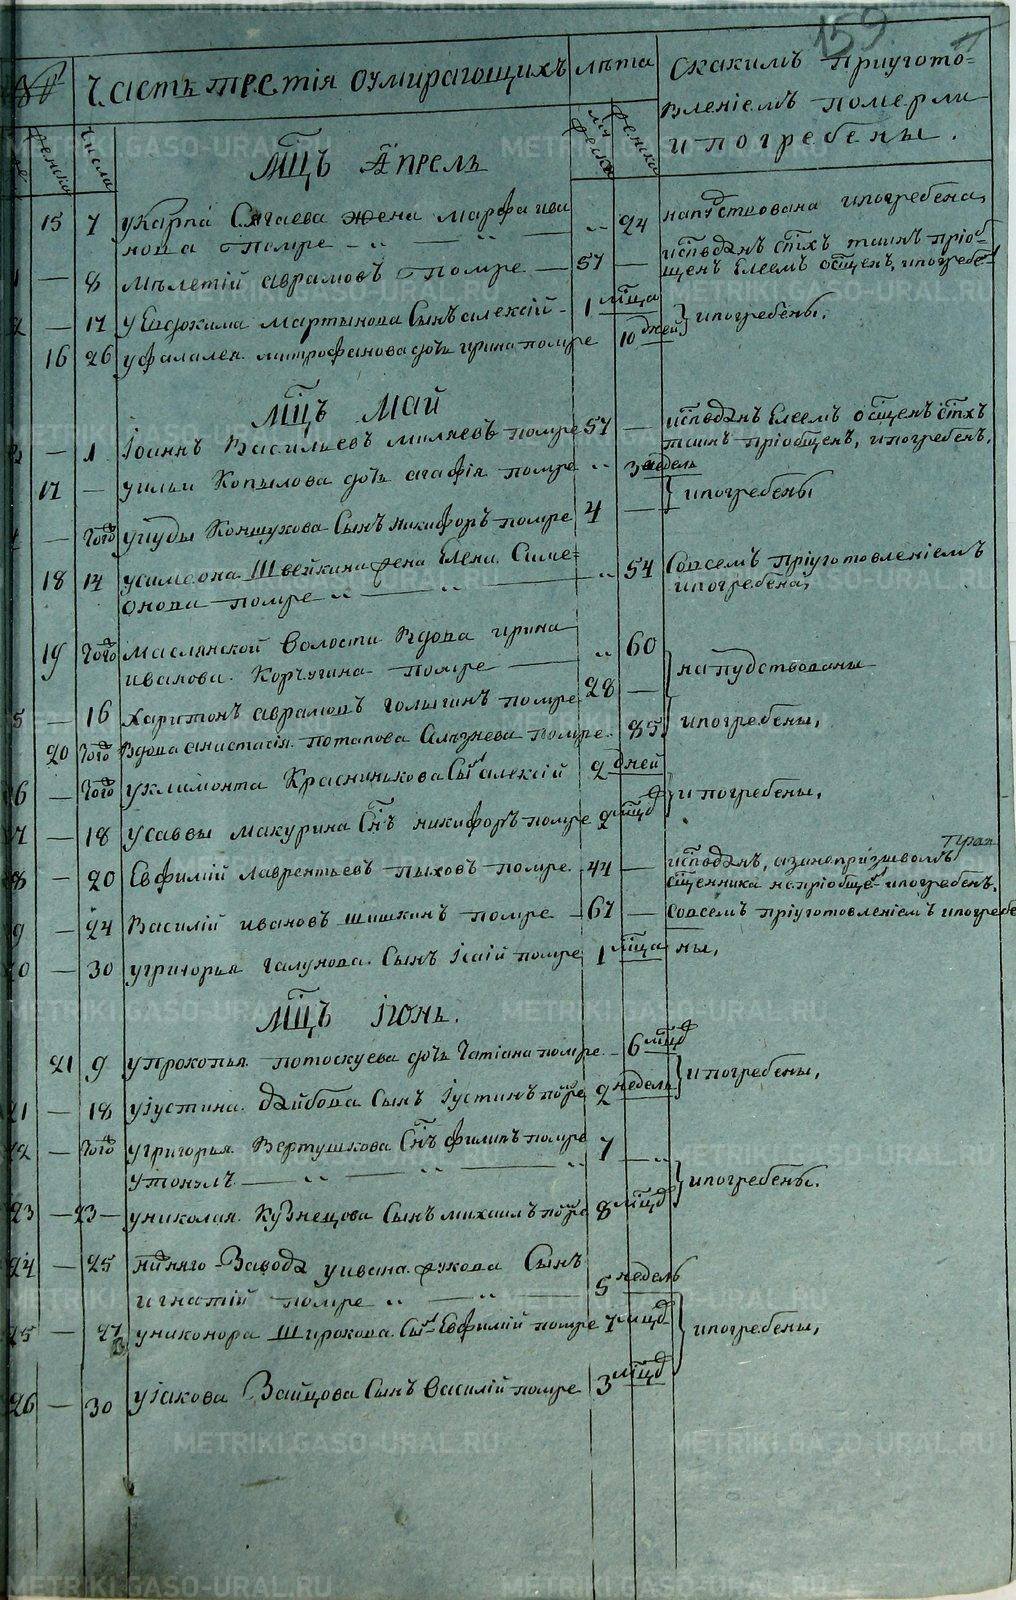 159
Часть третія оумирающихъ лѣта Скакимъ приугото-
вленіемъ померли
ипогребены.
женска числа
Мц҃ъ Апрель
15 7 укарпа жена марфа ива
нова помре 24 напутствована ипогребена,
— 8 мѣлетій аврамовъ помре — 57 — исповѣданъ ст҃хъ таинъ пріоб-
щенъ Елеемъ ос҃щенъ, ипогребе
— 17 у Евдокима Мартынова Сынъ алексій 1 мц҃а
ипогребены,
16 26 уфалалея митрофанова дочь ирина помре 10 дней
Мц҃ъ Май
— 1 Іоаннъ Васильевъ помре 57 — исповѣданъ Елеемъ ос҃щенъ ст҃хъ
таинъ пріобщенъ, ипогребенъ,
17 — уильи Копылова дочь агафія помре 3 недель
ипогребены
— того уіуды Коншукова Сынъ никифоръ помре 4 —
18 14 усимеона Швейкина жена Елена Симе-
онова помре 54 Совсемъ пріуготовленіемъ
ипогребена,
19 того маслянской волости вдова ирина
иванова Корчугина помре 60
напудствованы
5 — 16 Харитонъ аврамовъ голыгинъ помре 28 —
ипогребены,
20 того вдова анастасія потапова помре 85
6 — того уклимонта Красникова Сы҃ алексій 2 дней
ипогребены,
7 — 18 усаввы макурина Сн҃ъ никифоръ помре 2 мц҃а
8 — 20 Евфимій лаврентьевъ пыховъ помре 44 — исповѣданъ,
сщ҃енника непріобще ипогребенъ.
9 — 24 Василій ивановъ шишкинъ помре — 67 — Совсемъ пріуготовленіемъ ипогребе
ны,
— 30 угригорья галунова Сынъ Ісаій помре 1 мц҃а
Мц҃ъ Іюнь.
21 9 упрокопья потоскуева дочь татіана помре 6 мц҃а
ипогребены,
21 — 18 уіустина Сынъ Іустинъ помре 2 недель
22 — того угригорья Вертушкова Сн҃ъ филипъ помре 7 —
утонулъ
ипогребены.
23 — 23 — униколая Кузнецова Сынъ михаилъ помре 8 мц҃а
24 — 25 нижняго Завода уивана жукова Сынъ
игнатій помре 5 недель
25 — 27 униконора Широкова Сы҃ Евфимій помре 7 мц҃а
ипогребены,
26 — 30 уіакова Зайцова Сынъ Василій помре 3 мц҃а
METRIKI.GASO-URAL.RU